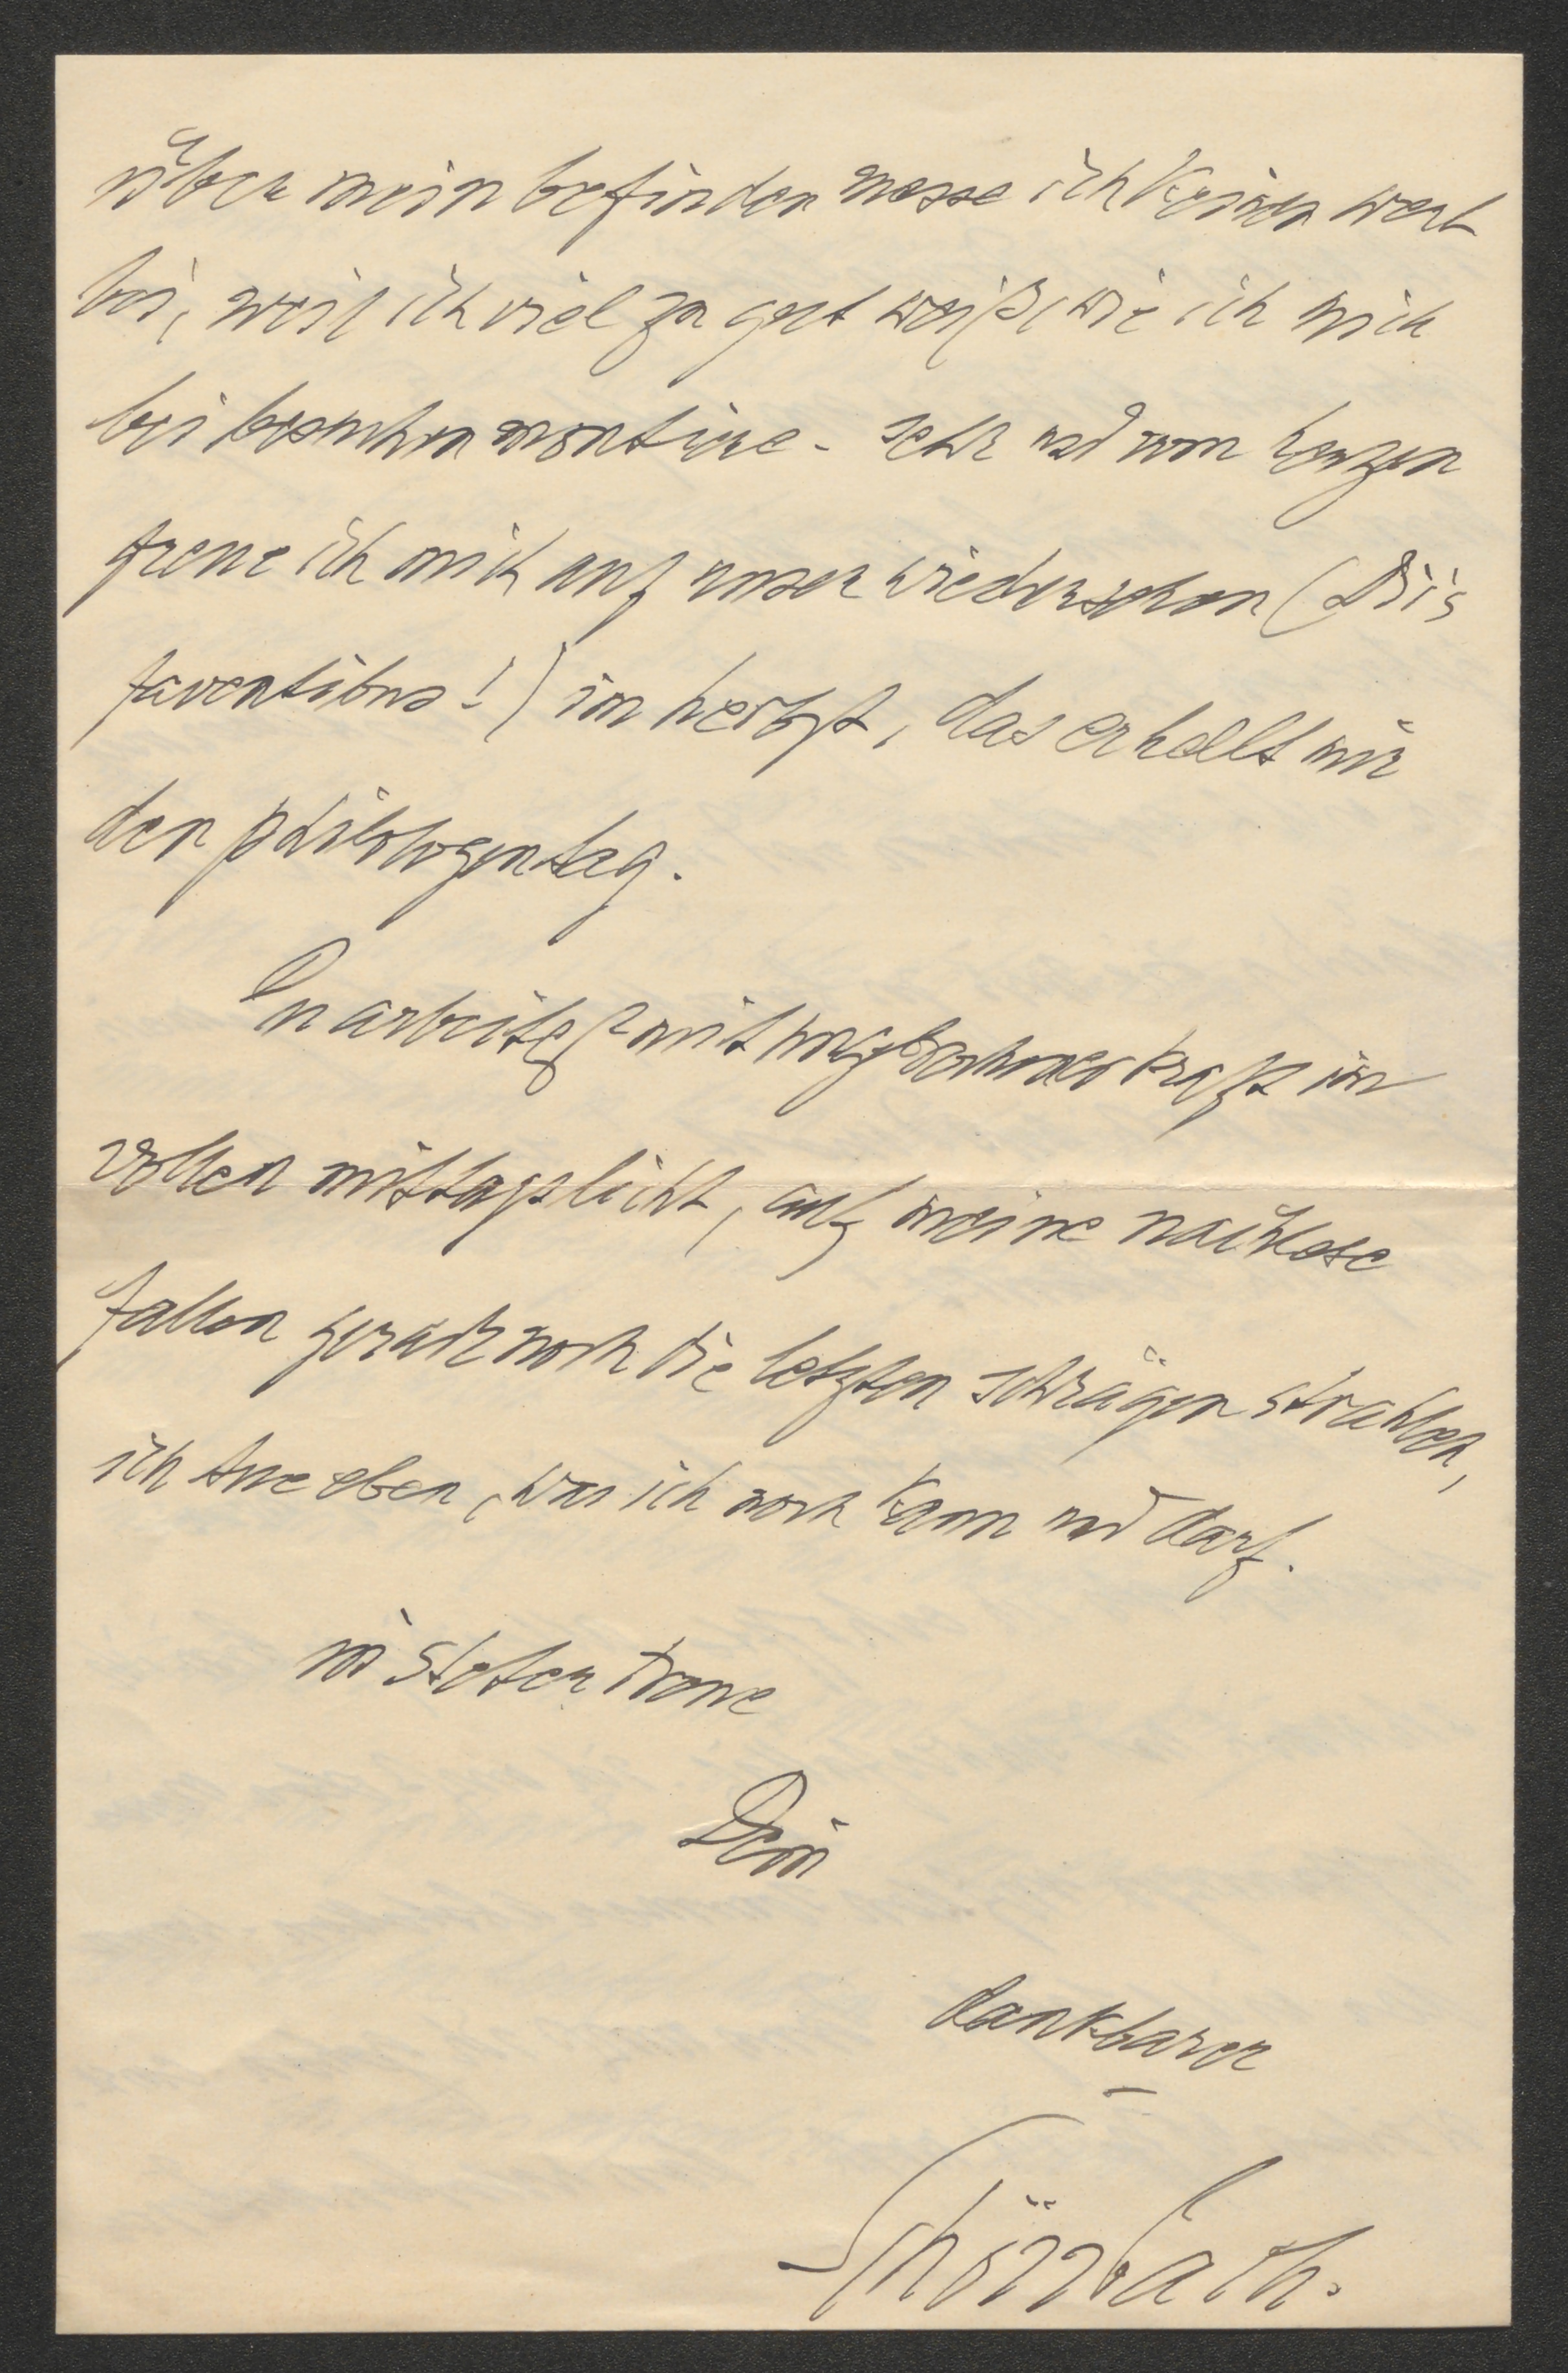 über mein befinden messe ich keinen wert
bei, weil ich viel zu gut weiß, wie ich mich
bei besuchen montiere - sehr und von herzen
freue ich mich auf unser wiedersehen (Diis
faventibus!) im herbst, das erhellt mir
den philologentag.
Du arbeitest mit kraft im
vollen mittagslicht, auf meine nachlese
fallen gerade noch die letzten schrägen strahlen,
ich tue eben, was ich noch kann und darf.
in steter treue
Dein
dankbarer
Schönbach.